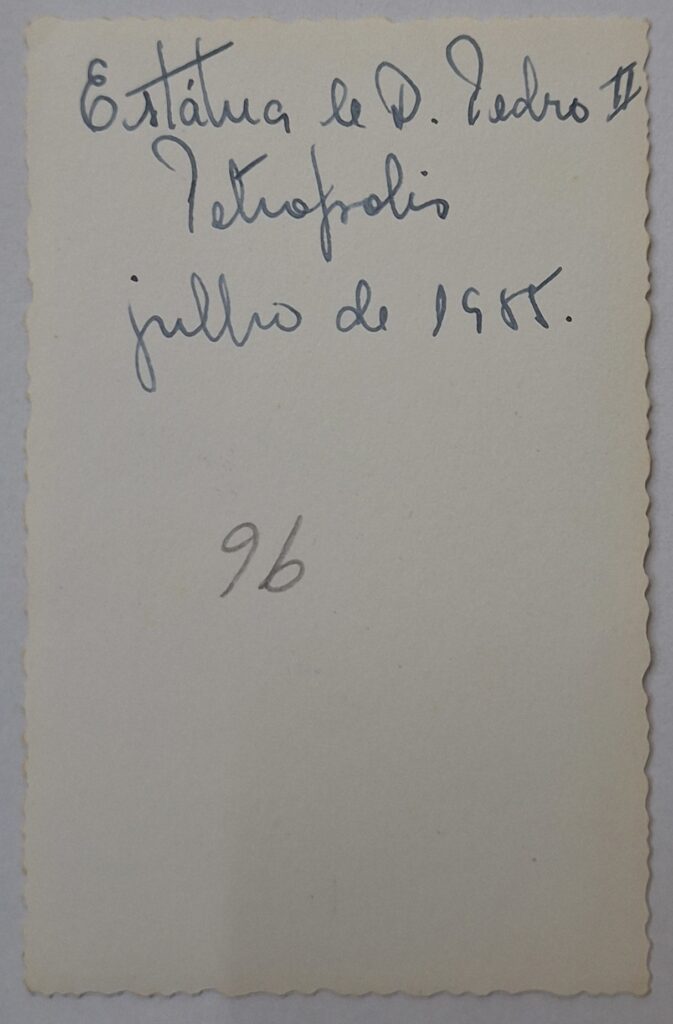 Estátua de D. Pedro II
Petropolis
julho de 1955.
96